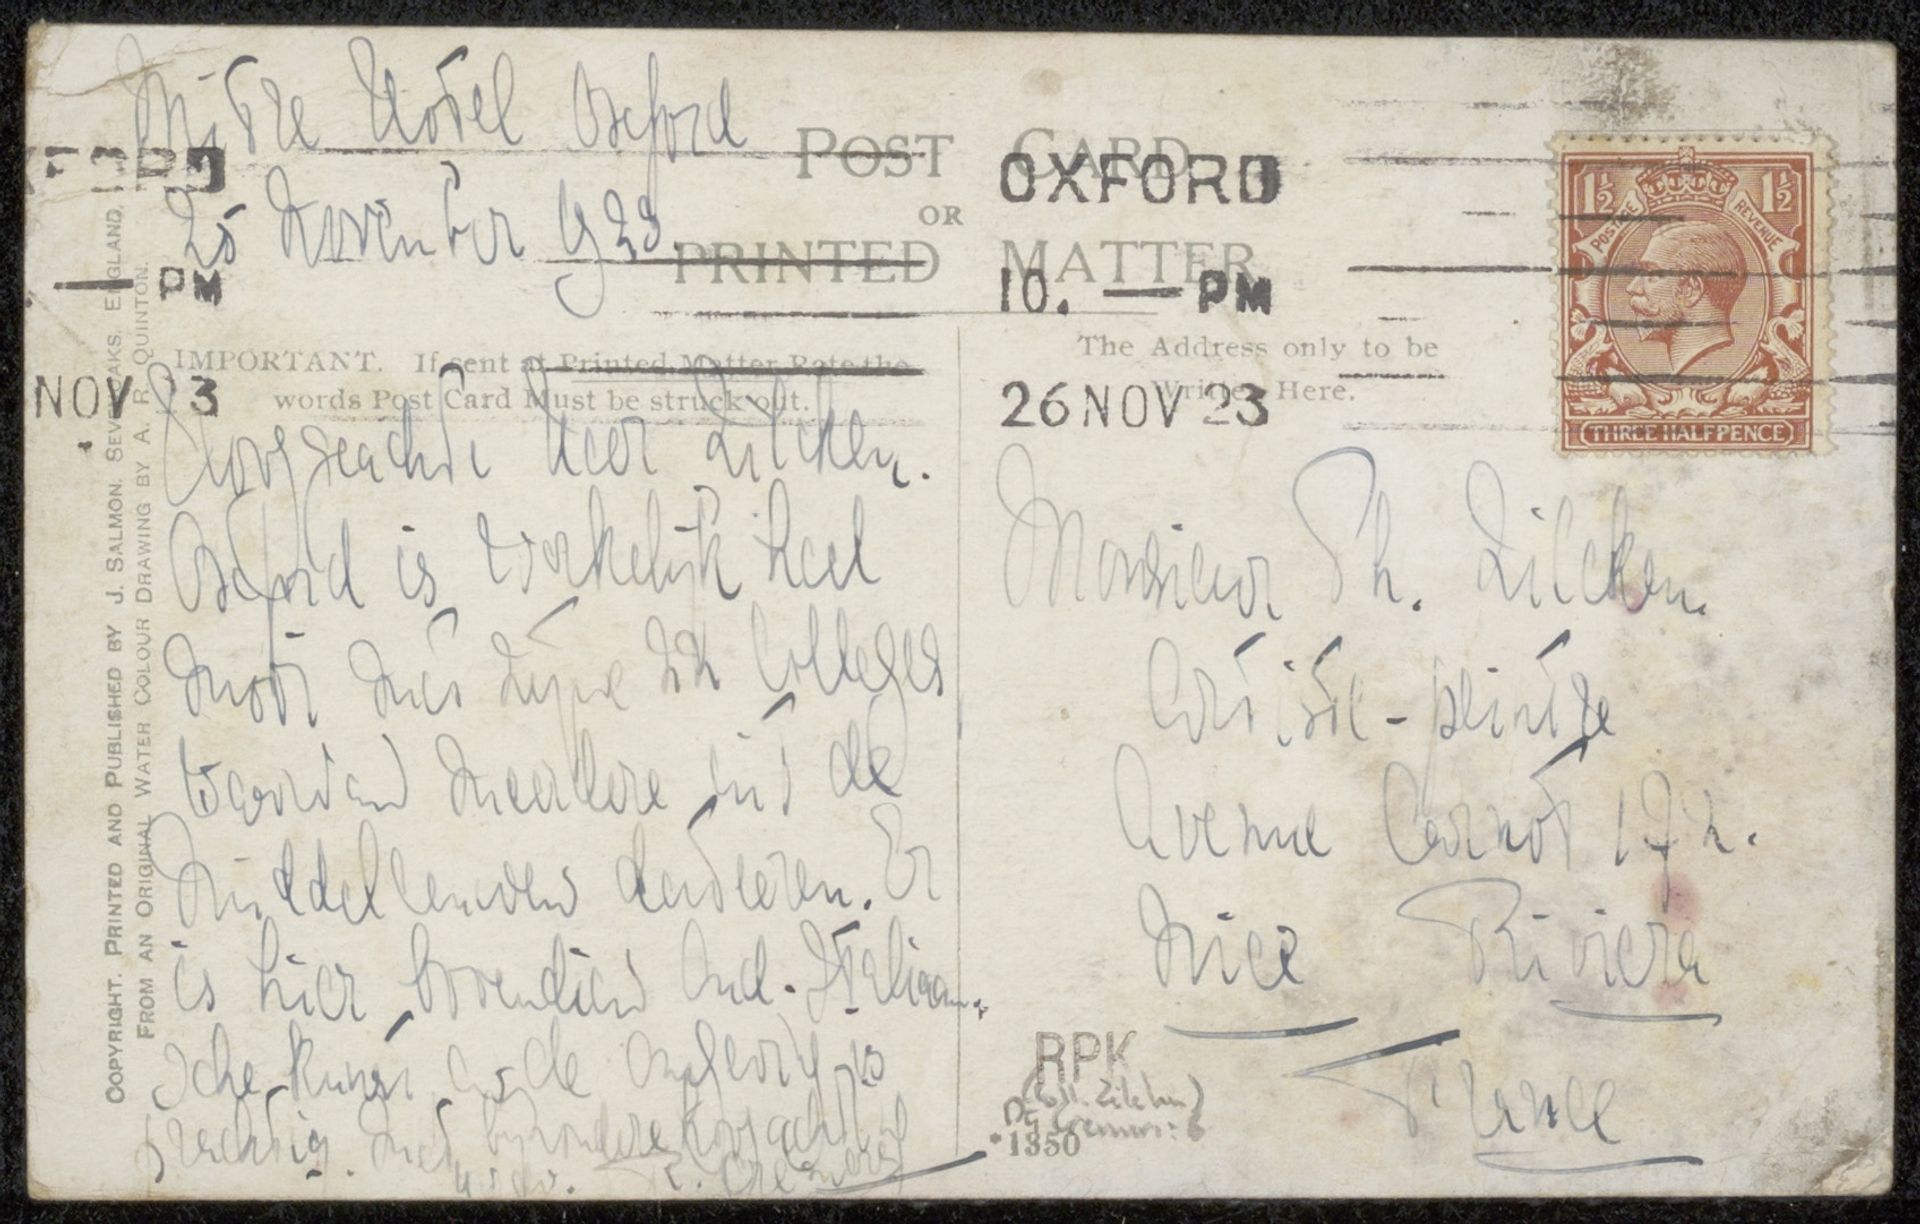 Mitre Hotel Oxford
25 November 1923.
POST CARD
OR
PRINTED MATTER
OXFORD
10. — PM
26 NOV 23
FORD
— PM
NOV 23
IMPORTANT. If sent at Printed Matter Rate the
words Post Card Must be struck out.
The Address only to be
Written Here.
POSTAGE REVENUE
1½ 1½
THREE HALFPENCE
Hooggeachte Heer Zilcken.
Oxford is werkelijk heel
mooi met zijne 22 Colleges
waarvan meerdere uit de
Middeleeuwen dateeren. Er
is hier bovendien Oud. Italiaan-
sche kunst en de omgeving is
prachtig. Met bijzondere hoogachting
Monsieur Ph. Zilcken
Artiste-peintre
Avenue Carnot
Nice Riviera
France
RPK
(Coll. Zilcken)
*1350
COPYRIGHT. PRINTED AND PUBLISHED BY J. SALMON. SEVENOAKS. ENGLAND.
FROM AN ORIGINAL WATER COLOUR DRAWING BY A. R. QUINTON.